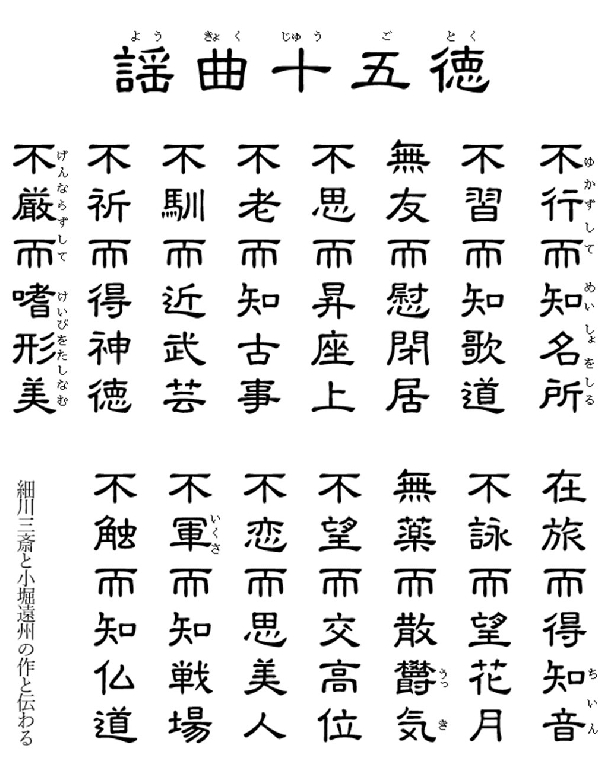 よう きょく じゅう ご とく
謡曲十五徳
不行而知名所
ゆかずして めいしょをしる
在旅而得知音
ちいん
不習而知歌道
不詠而望花月
無友而慰閉居
無薬而散欝気
うっき
不思而昇座上
不望而交高位
不老而知古事
不恋而思美人
不馴而近武芸
不軍而知戦場
いくさ
不祈而得神徳
不触而知仏道
不厳而嗜形美
げんならずして けいびをたしなむ
細川三斎と小堀遠州の作と伝わる